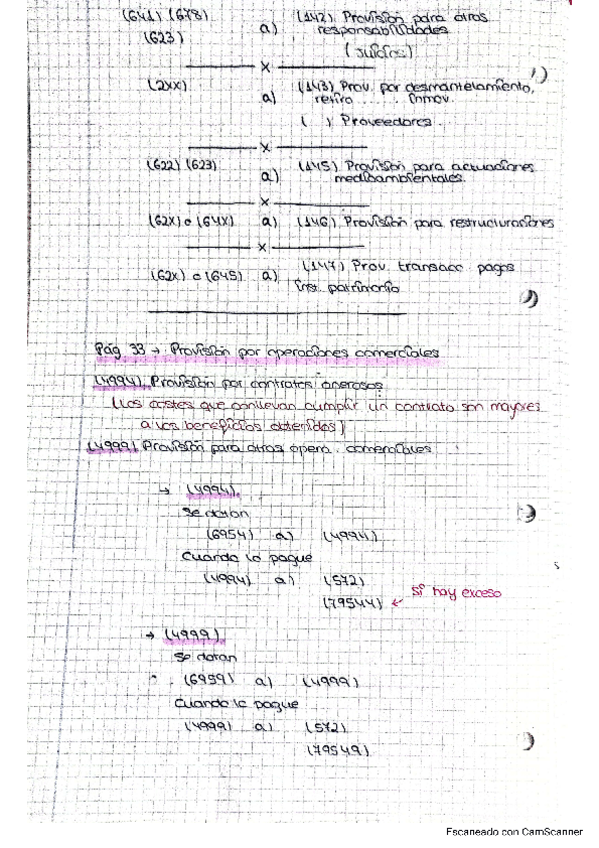 (641) (678) a) (142) Provisión para otras
responsabilidades
(623)
(Juicios)
x
(2xx) a) (143) Prov. por desmantelamiento,
retiro ..... inmov.
( ) Proveedores
x
(622) (623) a) (145) Provisión para actuaciones
medioambientales.
x
(62x) o (64x) a) (146) Provisión para restructuraciones
x
(62x) o (645) a) (147) Prov. transacc. pagos
inst. patrimonio
Pág 33 → Provisión por operaciones comerciales
(4994) Provisión por contratos onerosos
(Los costes que conllevan cumplir un contrato son mayores
a los beneficios obtenidos)
(4999) Provisión para otras opera. comerciales
→ (4994)
Se dotan
(6954) a) (4994)
Cuando lo pague
(4994) a) (572)
(79544) ← Si hay exceso
→ (4999)
Se dotan
(6959) a) (4999)
Cuando lo pague
(4999) a) (572)
(79549)
Escaneado con CamScanner